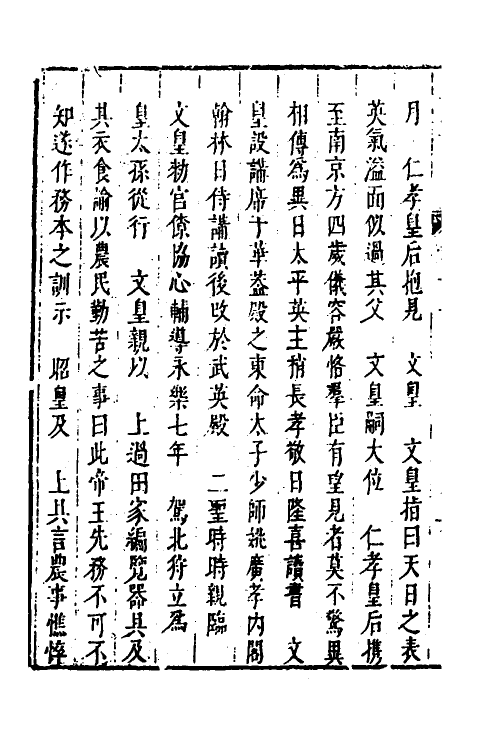 月　仁孝皇后抱見　文皇　文皇指曰天日之表
英氣溢面似過其父　文皇嗣大位　仁孝皇后携
至南京方四歲儀容嚴恪羣臣有望見者莫不驚異
相傳爲異日太平英主稍長孝敬日隆喜讀書　文
皇設講席于華葢殿之東命太子少師姚廣孝内閣
翰林日侍講讀後改於武英殿　二聖時時親臨
文皇勑官僚協心輔導永樂七年　駕北狩立爲
皇太孫從行　文皇親以　上過田家編覧器具及
其衣食諭以農民勤苦之事曰此帝王先務不可不
知遂作務本之訓示　昭皇及　上其言農事憔悴